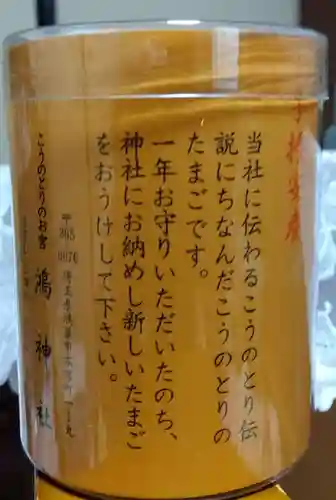 当社に伝わるこうのとり伝
説にちなんだこうのとりの
たまごです。
一年お守りいただいたのち、
神社にお納めし新しいたまご
をおうけして下さい。
〒365
0076
こうのとりのお宮
鴻神社